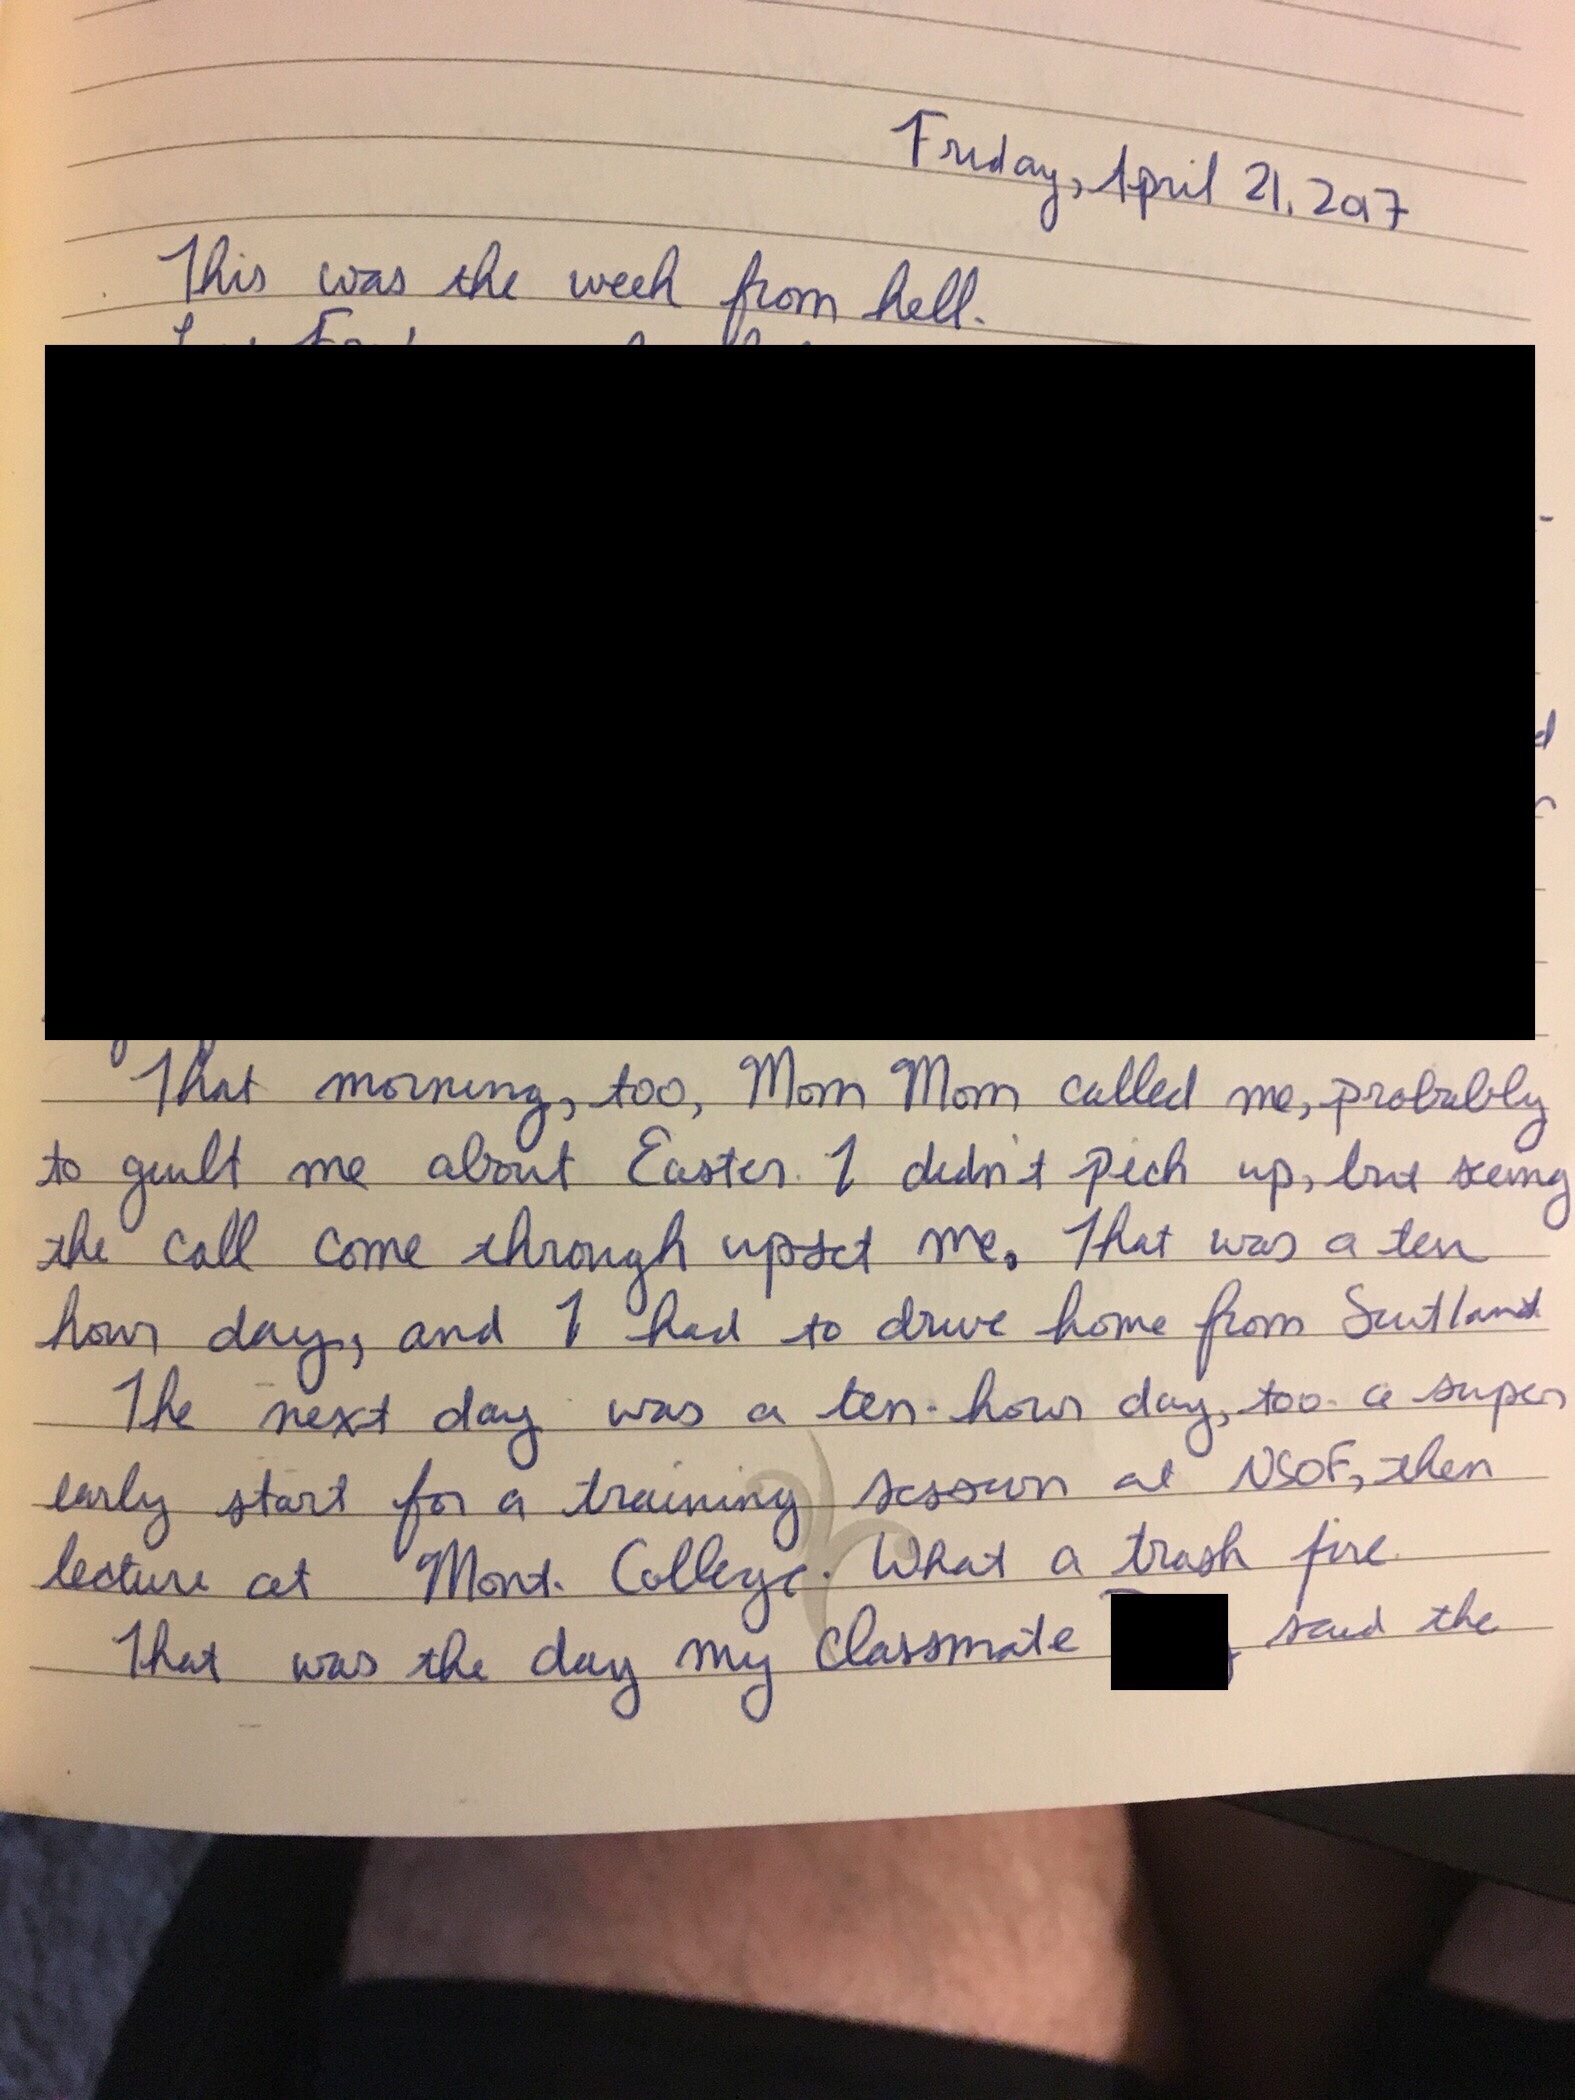 Friday, April 21, 2017
This was the week from hell.
That morning, too, Mom Mom called me, probably
to guilt me about Easter. I didn't pick up, but seeing
the call come through upset me. That was a ten
hour day, and I had to drive home from Suitland
The next day was a ten-hour day, too. a super
early start for a training session at NSOF, then
lecture at Mont. College. What a trash fire.
That was the day my classmate said the